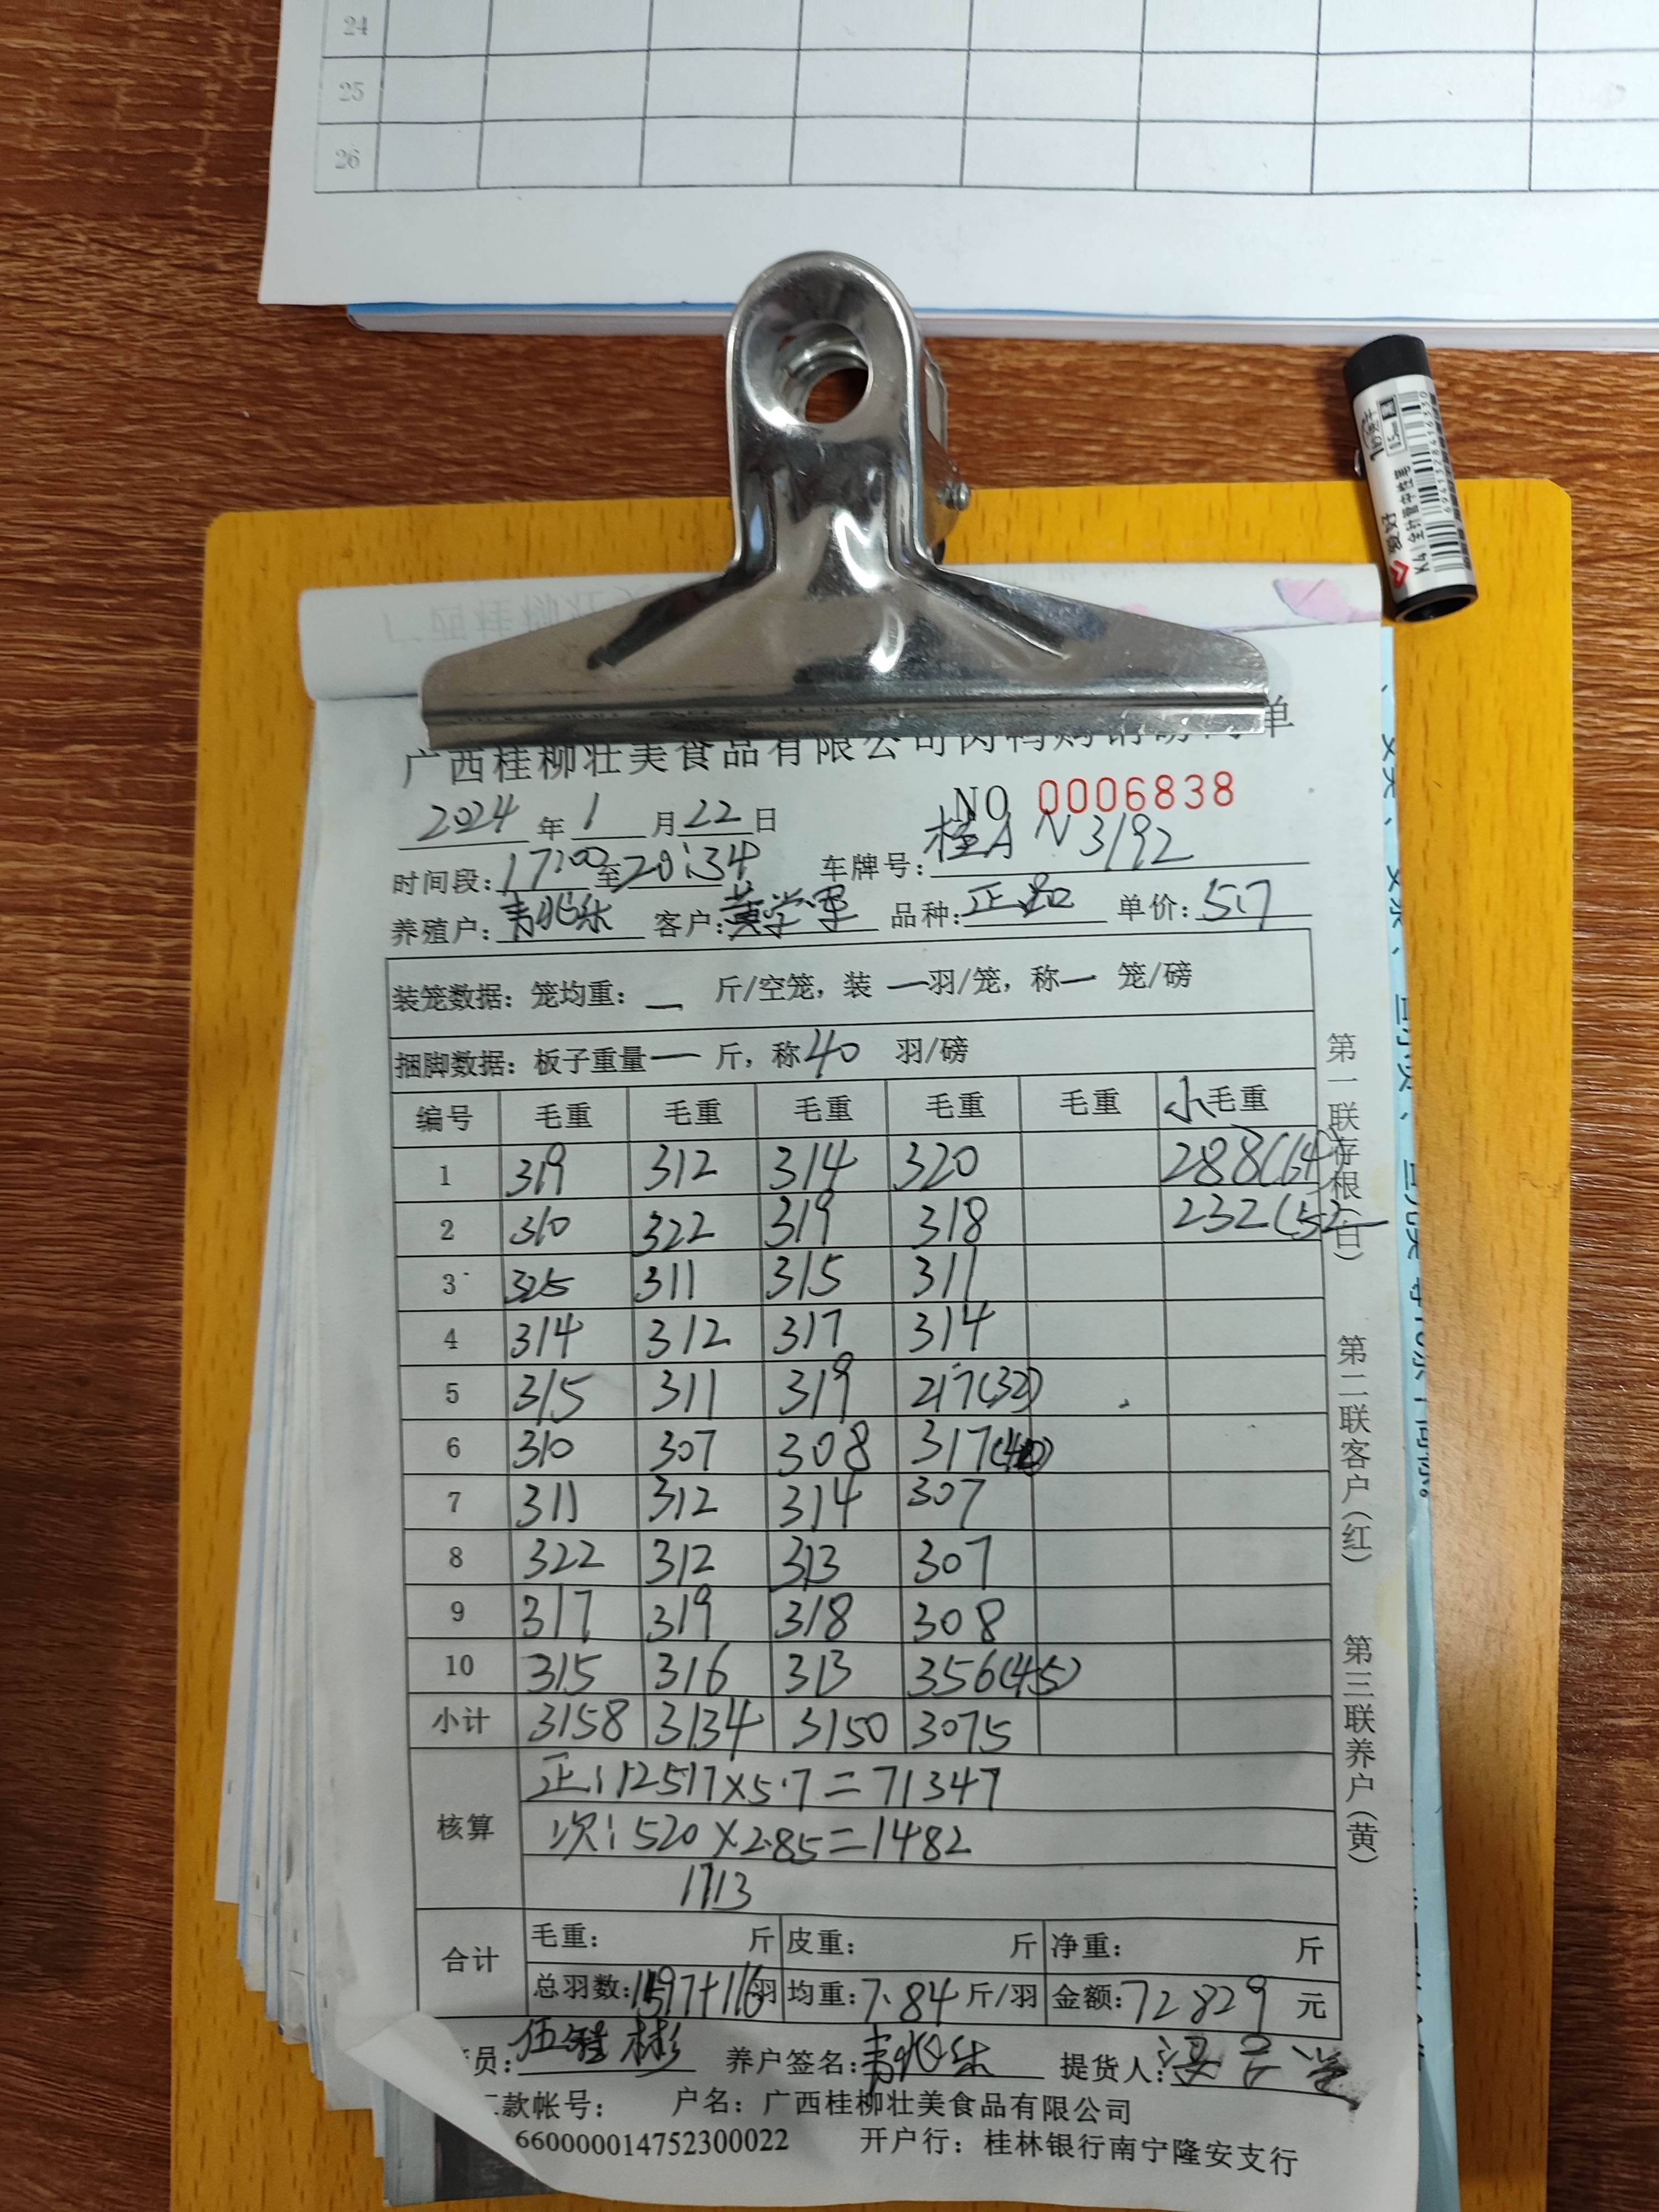 24
25
26
爱好
K41全针管中性笔
0.5mm
广西桂柳壮美食品有限公司肉鸭购销 单
NO 0006838
2024 年 1 月 22 日
时间段: 17:00 至 20:34 车牌号: 桂A N3192
养殖户: 韦兆乐 客户: 黄学军 品种: 正品 单价: 5.7
装笼数据: 笼均重: — 斤/空笼, 装 — 羽/笼, 称 — 笼/磅
捆脚数据: 板子重量 — 斤, 称 40 羽/磅
编号 毛重 毛重 毛重 毛重 毛重 小毛重
1 319 312 314 320 288(64)
2 310 322 319 318 232(52
3 325 311 315 311
4 314 312 317 314
5 315 311 319 217(32)
6 310 307 308 317(40)
7 311 312 314 307
8 322 312 313 307
9 317 319 318 308
10 315 316 313 356(45)
小计 3158 3134 3150 3075
核算
正: 12517×5.7=71347
次: 520×2.85=1482
1713
合计
毛重: 斤 皮重: 斤 净重: 斤
总羽数: 1597+116 羽 均重: 7.84 斤/羽 金额: 72829 元
员: 养户签名: 韦兆乐 提货人:
款帐号: 户名: 广西桂柳壮美食品有限公司
660000014752300022 开户行: 桂林银行南宁隆安支行
第一联存根(白)
第二联客户(红)
第三联养户(黄)